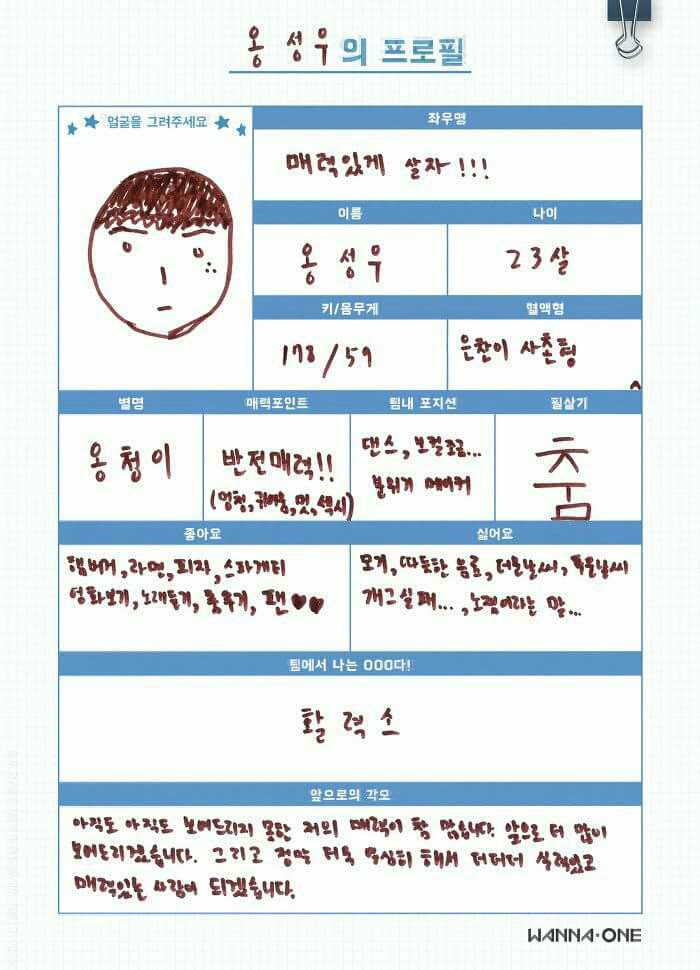 옹 성우의 프로필
얼굴을 그려주세요
좌우명
매력있게 살자!!!
이름
나이
옹 성우
23살
키/몸무게
혈액형
178/59
은찬이 사촌형
별명
매력포인트
팀내 포지션
필살기
옹청이
반전매력!!
(멍청,귀여움,멋,섹시)
댄스, 보컬조금...
분위기 메이커
춤
좋아요
싫어요
햄버거,라면,피자,스파게티
영화보기,노래듣기,춤추기,팬♥♥
모기, 따뜻한 음료, 더운날씨, 추운날씨
개그실패..., 노잼이라는 말...
팀에서 나는 OOO다!
활력소
앞으로의 각오
아직도 아직도 보여드리지 못한 저의 매력이 참 많습니다. 앞으로 더 많이
보여드리겠습니다. 그리고 정말 더욱 열심히 해서 더더더 실력있고
매력있는 사람이 되겠습니다.
WANNA·ONE